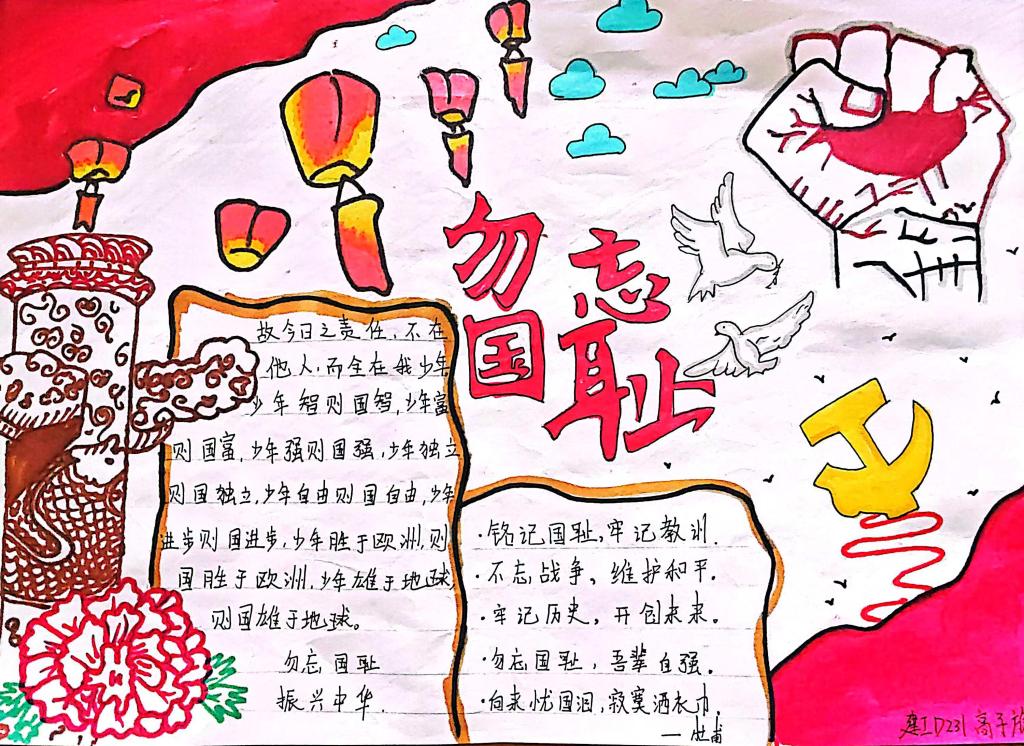 勿忘
国耻
故今日之责任，不在
他人，而全在我少年
少年智则国智，少年富
则国富，少年强则国强，少年独立
则国独立，少年自由则国自由，少年
进步则国进步，少年胜于欧洲，则
国胜于欧洲，少年雄于地球，
则国雄于地球。
勿忘国耻
振兴中华.
·铭记国耻，牢记教训.
·不忘战争，维护和平.
·牢记历史，开创未来.
·勿忘国耻，吾辈自强.
·向来忧国泪，寂寞洒衣巾.
—杜甫
D231 高子